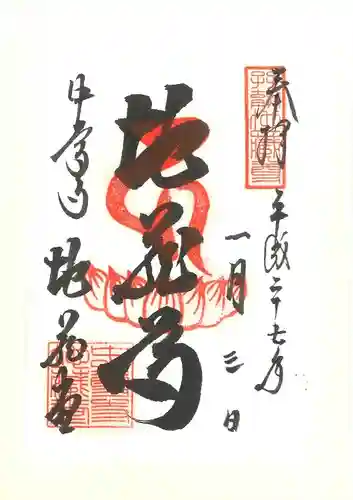 奉拝
平成二十七年
一月三日
地蔵尊
中尊寺
地蔵堂